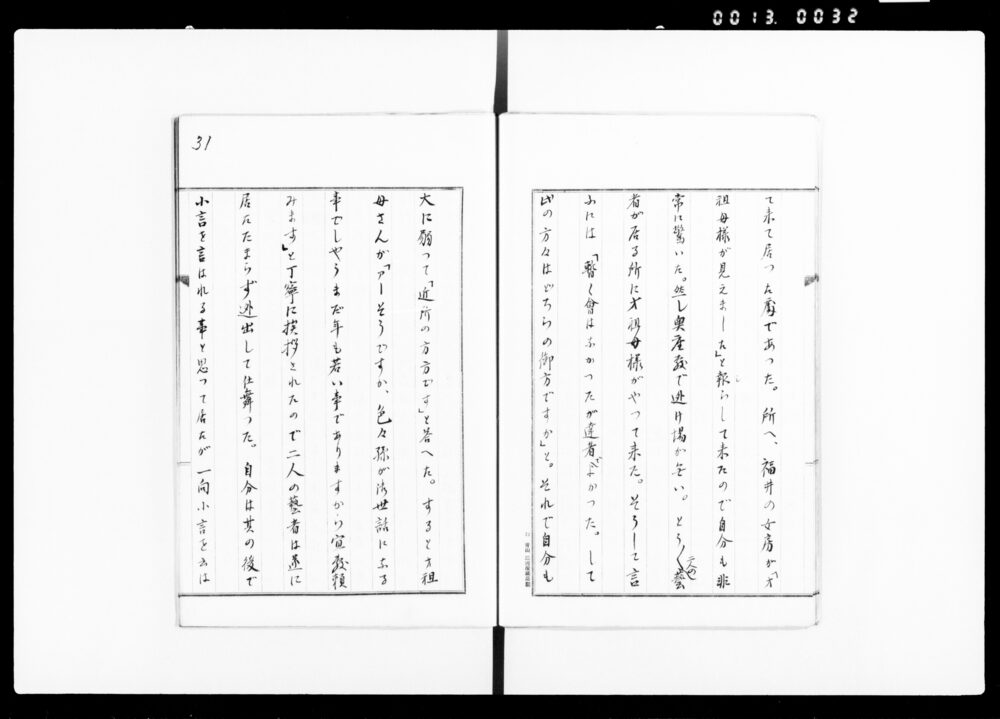 0013. 0032
て来て居つた處であつた。所へ、福井の女房が「才
祖母様が見えました」と報らして来たので自分も非
常に驚いた。然し奥座敷で逃げ場が無い。とう〱二人の藝
者が居る所に才祖母様がやつて来た。そうして言
ふには「暫く會はなかつたが達者でよかつた。して
此の方々はどちらの御方ですか」と。それで自分も
31
大に弱つて「近所の方方です」と答へた。すると才祖
母さんが「アーそうですか、色々孫が御世話になる
事でしやうまだ年も若い事でありますから宜敷頼
みます」と丁寧に挨拶されたので二人の藝者は遂に
居たたまらず逃出して仕舞つた。自分は其の後で
小言を言はれる事と思つて居たが一向小言を云は